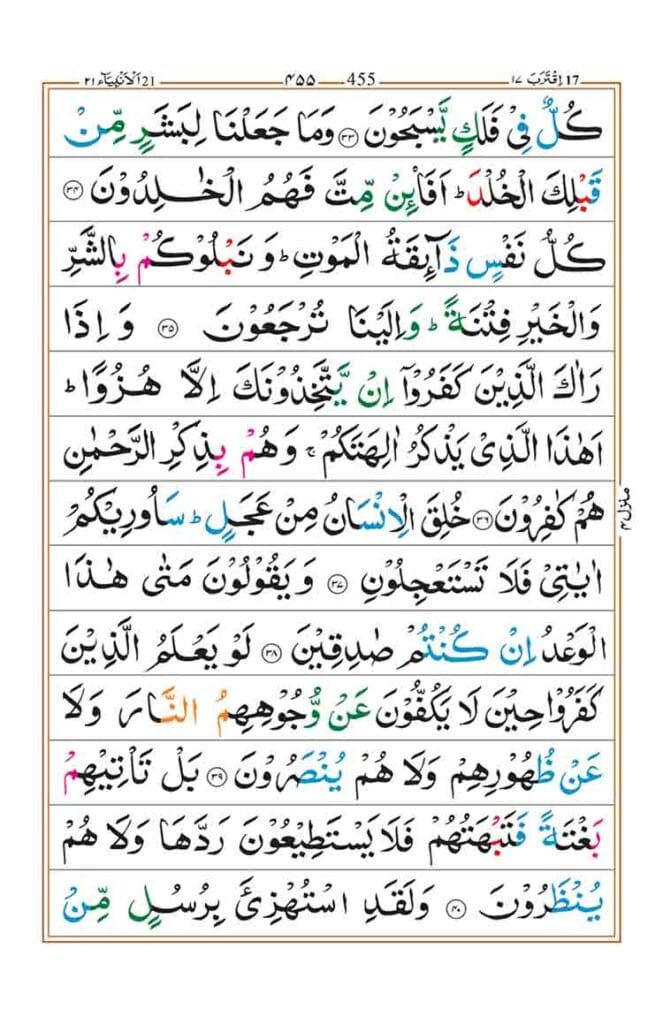 اِقْتَرَبَ ١٧ 17 455 ٤٥٥ اَلْاَنْۢبِيَآء ٢١ 21
كُلٌّ فِيْ فَلَكٍ يَّسْبَحُوْنَ ۝٣٣ وَمَا جَعَلْنَا لِبَشَرٍ مِّنْ
قَبْلِكَ الْخُلْدَ ؕ اَفَا۠ئِنْ مِّتَّ فَهُمُ الْخٰلِدُوْنَ ۝٣٤
كُلُّ نَفْسٍ ذَآئِقَةُ الْمَوْتِ ؕ وَنَبْلُوْكُمْ بِالشَّرِّ
وَالْخَيْرِ فِتْنَةً ؕ وَاِلَيْنَا تُرْجَعُوْنَ ۝٣٥ وَاِذَا
رَاٰكَ الَّذِيْنَ كَفَرُوْۤا اِنْ يَّتَّخِذُوْنَكَ اِلَّا هُزُوًا ؕ
اَهٰذَا الَّذِيْ يَذْكُرُ اٰلِهَتَكُمْ ۚ وَهُمْ بِذِكْرِ الرَّحْمٰنِ
هُمْ كٰفِرُوْنَ ۝٣٦ خُلِقَ الْاِنْسَانُ مِنْ عَجَلٍ ؕ سَاُورِيْكُمْ
اٰيٰتِيْ فَلَا تَسْتَعْجِلُوْنِ ۝٣٧ وَيَقُوْلُوْنَ مَتٰى هٰذَا
الْوَعْدُ اِنْ كُنْتُمْ صٰدِقِيْنَ ۝٣٨ لَوْ يَعْلَمُ الَّذِيْنَ
كَفَرُوْا حِيْنَ لَا يَكُفُّوْنَ عَنْ وُّجُوْهِهِمُ النَّارَ وَلَا
عَنْ ظُهُوْرِهِمْ وَلَا هُمْ يُنْصَرُوْنَ ۝٣٩ بَلْ تَاْتِيْهِمْ
بَغْتَةً فَتَبْهَتُهُمْ فَلَا يَسْتَطِيْعُوْنَ رَدَّهَا وَلَا هُمْ
يُنْظَرُوْنَ ۝٤٠ وَلَقَدِ اسْتُهْزِئَ بِرُسُلٍ مِّنْ
منزل ٤